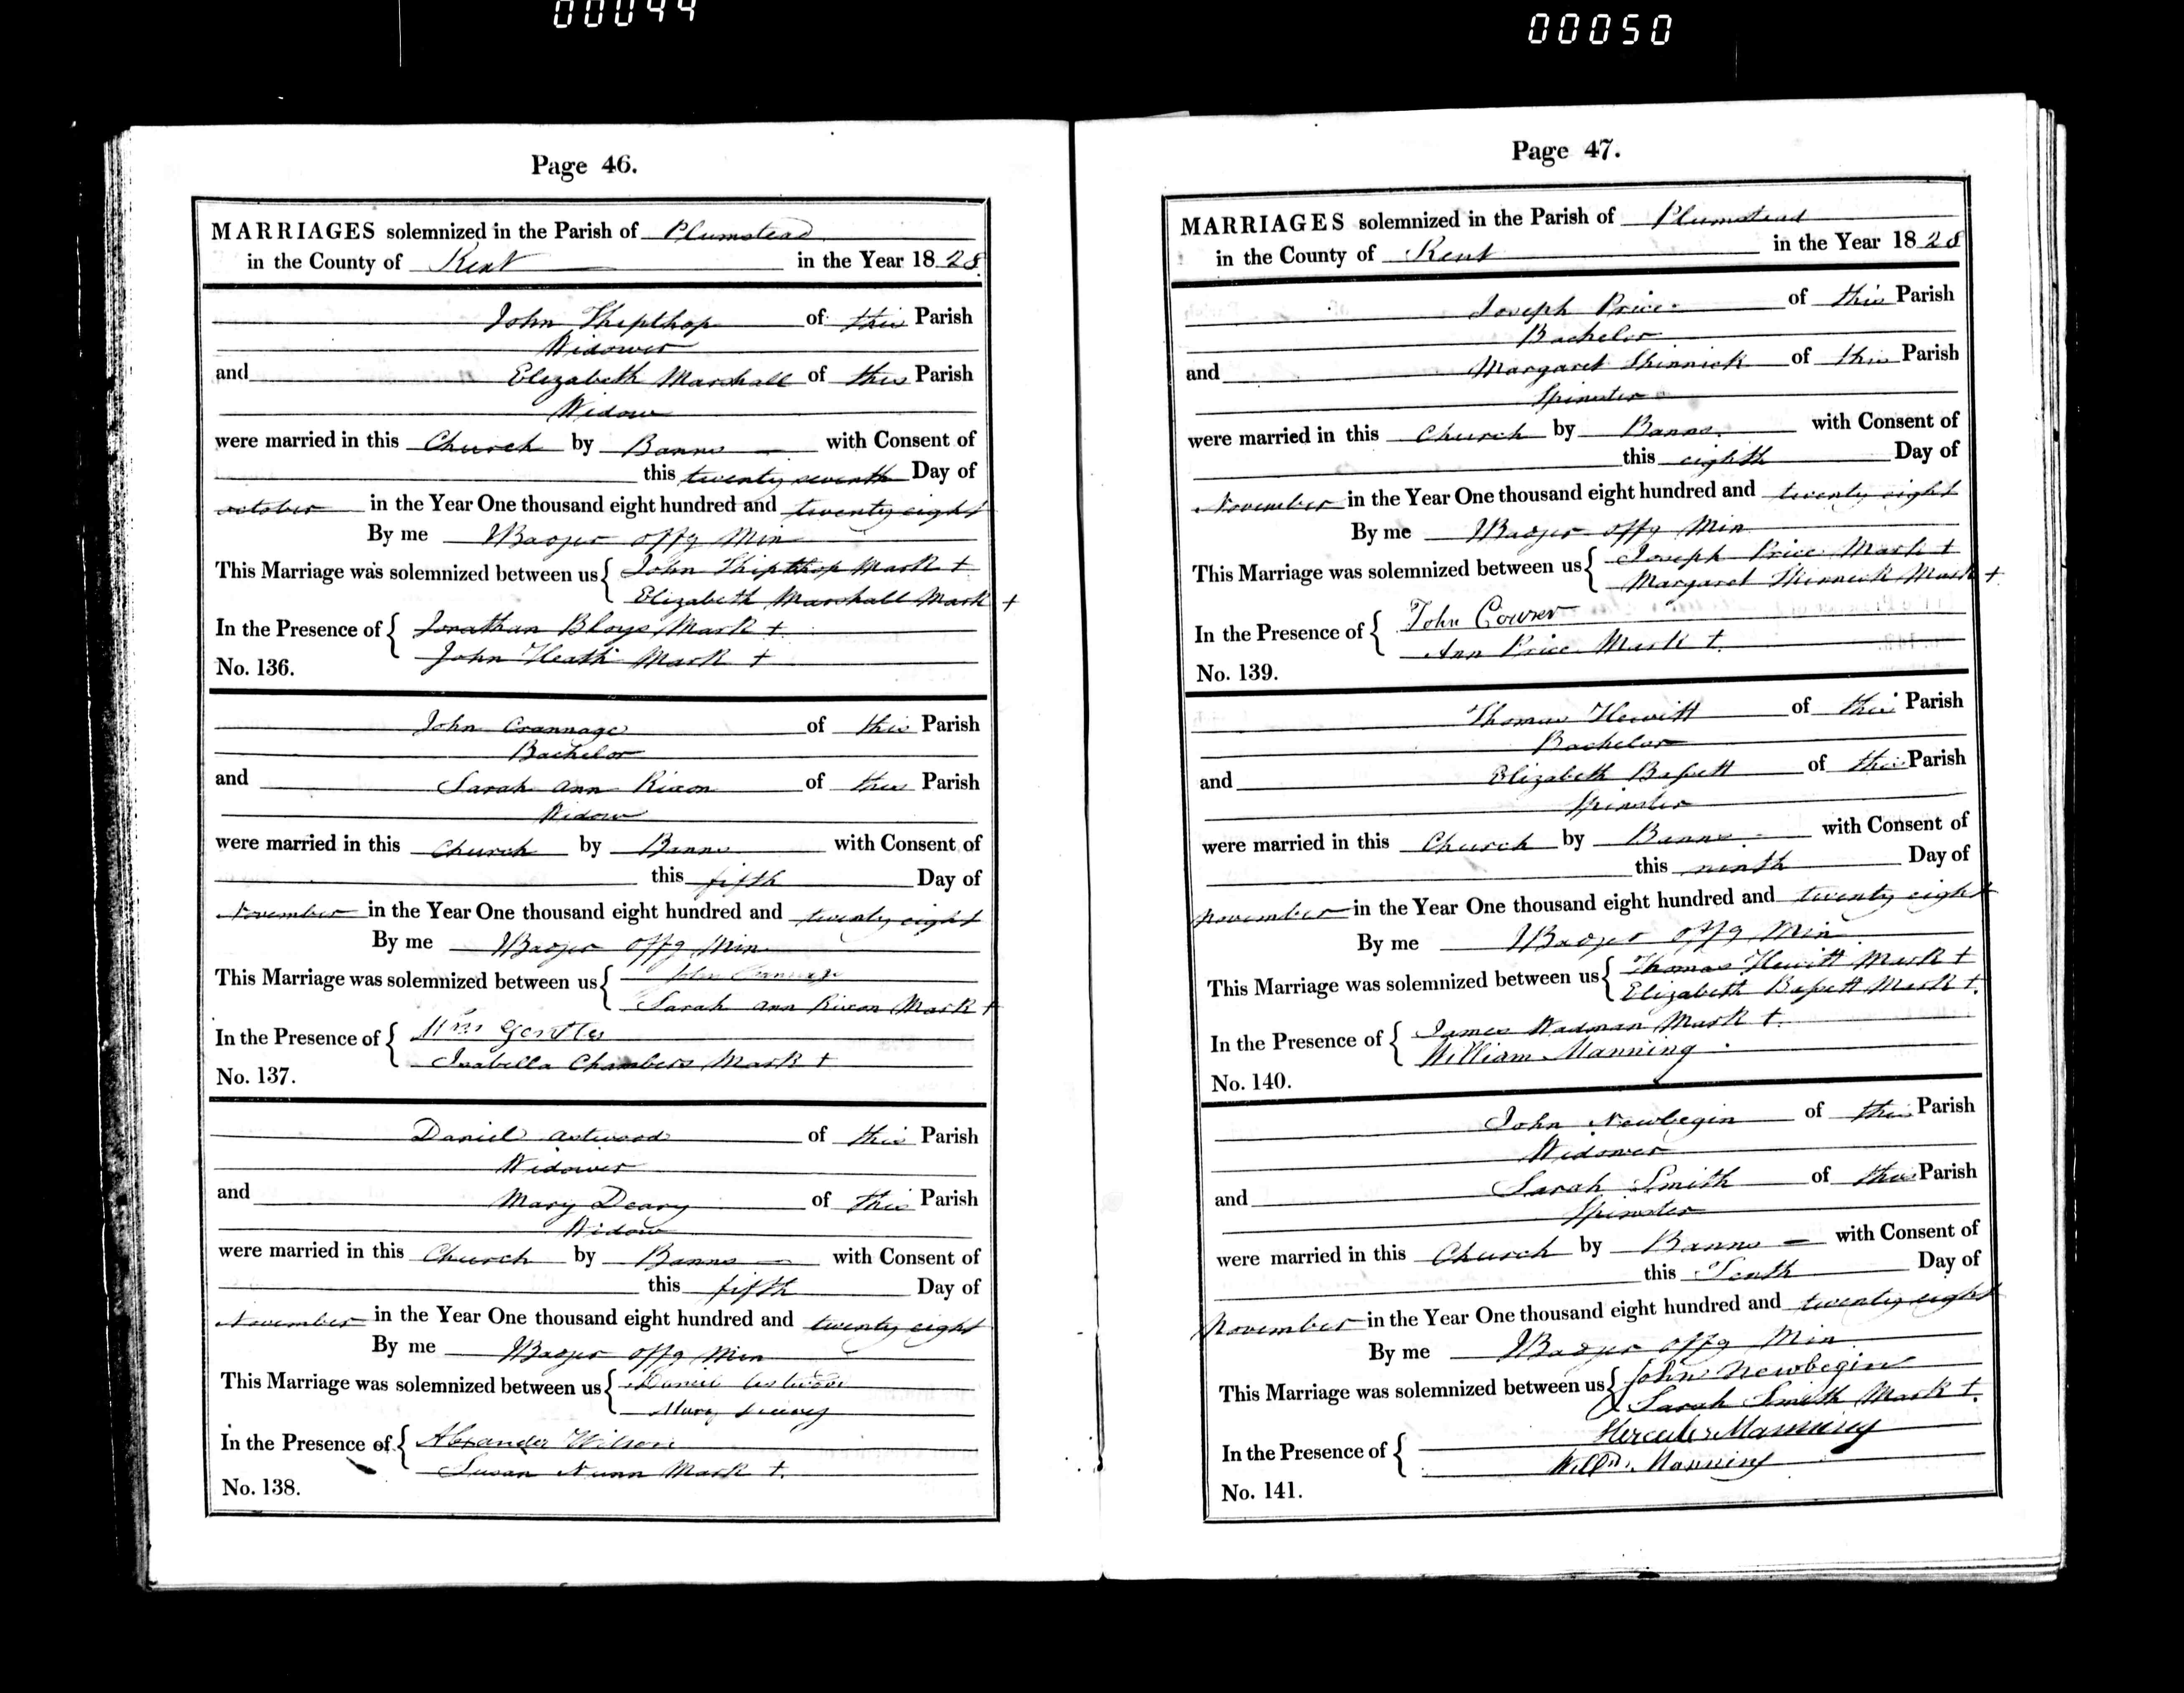 00044
00050
Page 46.
MARRIAGES solemnized in the Parish of Plumstead
in the County of Kent in the Year 1828.
John Shipthop of this Parish
Widower
and Elizabeth Marshall of this Parish
Widow
were married in this Church by Banns with Consent of
this twenty seventh Day of
october in the Year One thousand eight hundred and twenty eight
By me WBadger offg Min
This Marriage was solemnized between us { John Shipthop Mark +
Elizabeth Marshall Mark +
In the Presence of { Jonathan Bloys Mark +
John Heath Mark +
No. 136.
John Crannage of this Parish
Bachelor
and Sarah ann Rixon of this Parish
Widow
were married in this Church by Banns with Consent of
this fifth Day of
November in the Year One thousand eight hundred and twenty eight
By me WBadger offg Min
This Marriage was solemnized between us { John Crannage
Sarah ann Rixon Mark +
In the Presence of { Wm
Isabella Chambers Mark +
No. 137.
Daniel astwood of this Parish
Widower
and Mary Deary of this Parish
Widow
were married in this Church by Banns with Consent of
this fifth Day of
November in the Year One thousand eight hundred and twenty eight
By me WBadger offg Min
This Marriage was solemnized between us { Daniel
Mary
In the Presence of { Alexander Wilson
Susan Nunn Mark +.
No. 138.
Page 47.
MARRIAGES solemnized in the Parish of Plumstead
in the County of Kent in the Year 1828
Joseph Price of this Parish
Bachelor
and Margaret Shinnick of this Parish
Spinster
were married in this Church by Banns. with Consent of
this eighth Day of
November in the Year One thousand eight hundred and twenty eight
By me WBadger offg Min
This Marriage was solemnized between us { Joseph Price Mark +
Margaret Shinnick Mark +
In the Presence of { John
Ann Price Mark +.
No. 139.
Thomas Hewitt of this Parish
Bachelor
and Elizabeth Baſsett of this Parish
Spinster
were married in this Church by Banns with Consent of
this ninth Day of
November in the Year One thousand eight hundred and twenty eight
By me WBadger offg Min
This Marriage was solemnized between us { Thomas Hewitt Mark +
Elizabeth Baſsett Mark +.
In the Presence of { James Wadman Mark +.
William Manning
No. 140.
John Newbegin of this Parish
Widower
and Sarah Smith of this Parish
Spinster
were married in this Church by Banns with Consent of
this Tenth Day of
November in the Year One thousand eight hundred and twenty eight
By me WBadger offg Min
This Marriage was solemnized between us { John Newbegin
Sarah Smith Mark +.
In the Presence of { Hercules Manning
Willm. Manning
No. 141.